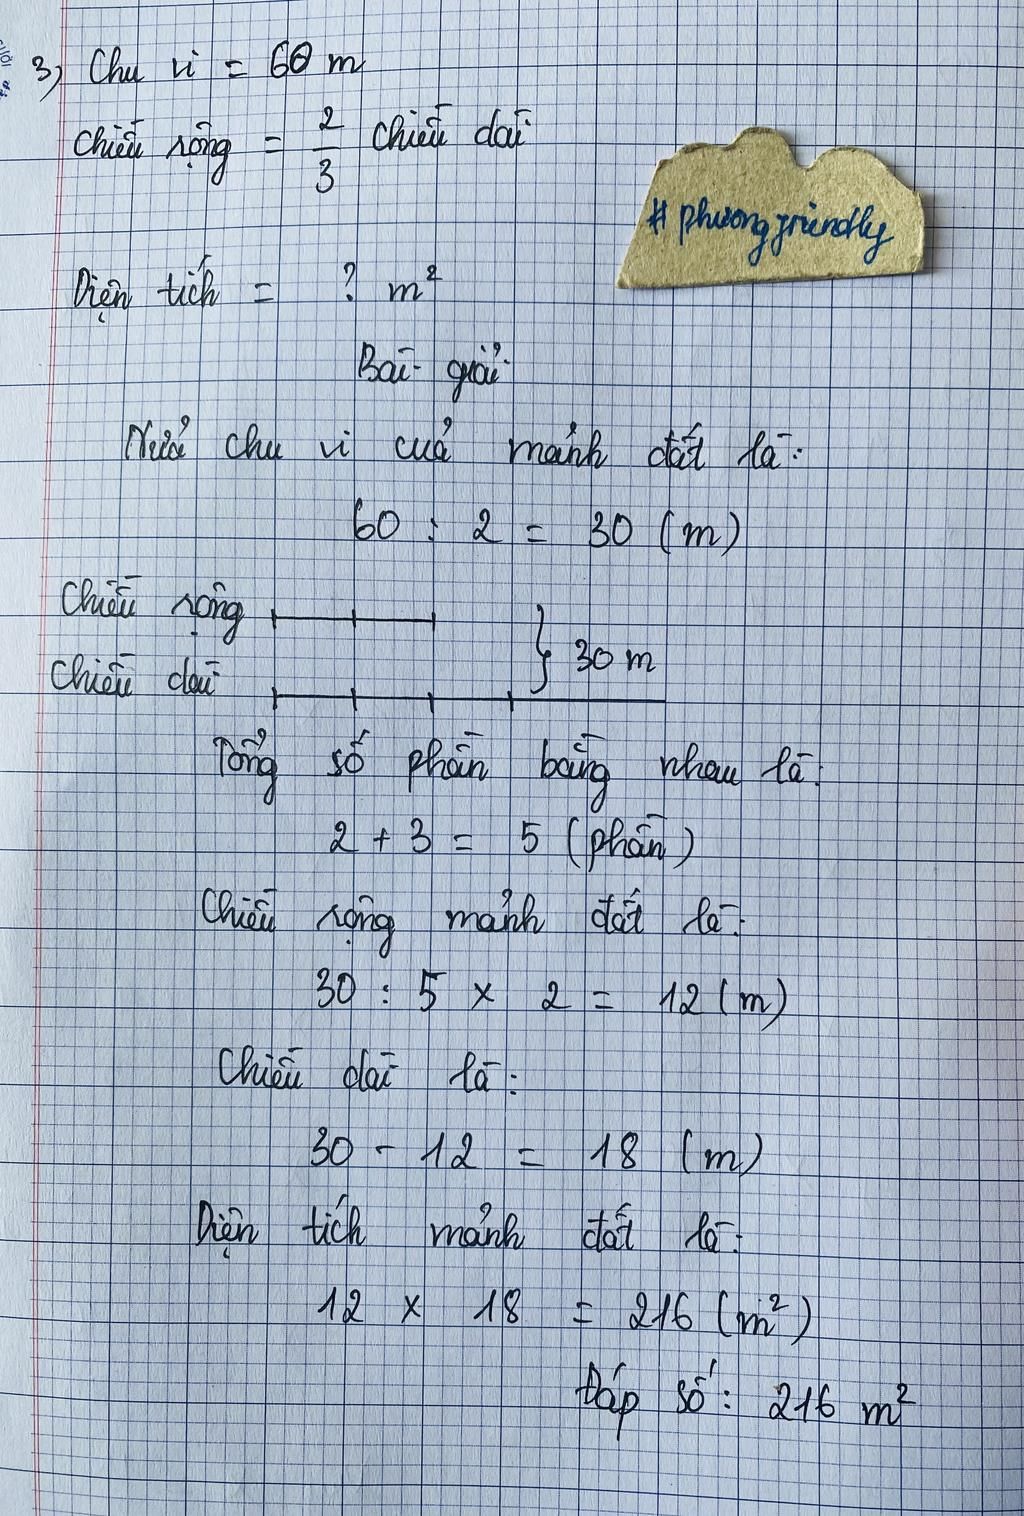 3) Chu vi = 60 m
Chiều rộng = 2/3 chiều dài
#phuongfriendly
Diện tích = ? m²
Bài giải
Nửa chu vi của mảnh đất là:
60 : 2 = 30 (m)
Chiều rộng
30 m
Chiều dài
Tổng số phần bằng nhau là:
2 + 3 = 5 (phần)
Chiều rộng mảnh đất là:
30 : 5 x 2 = 12 (m)
Chiều dài là:
30 - 12 = 18 (m)
Diện tích mảnh đất là:
12 x 18 = 216 (m²)
Đáp số: 216 m²